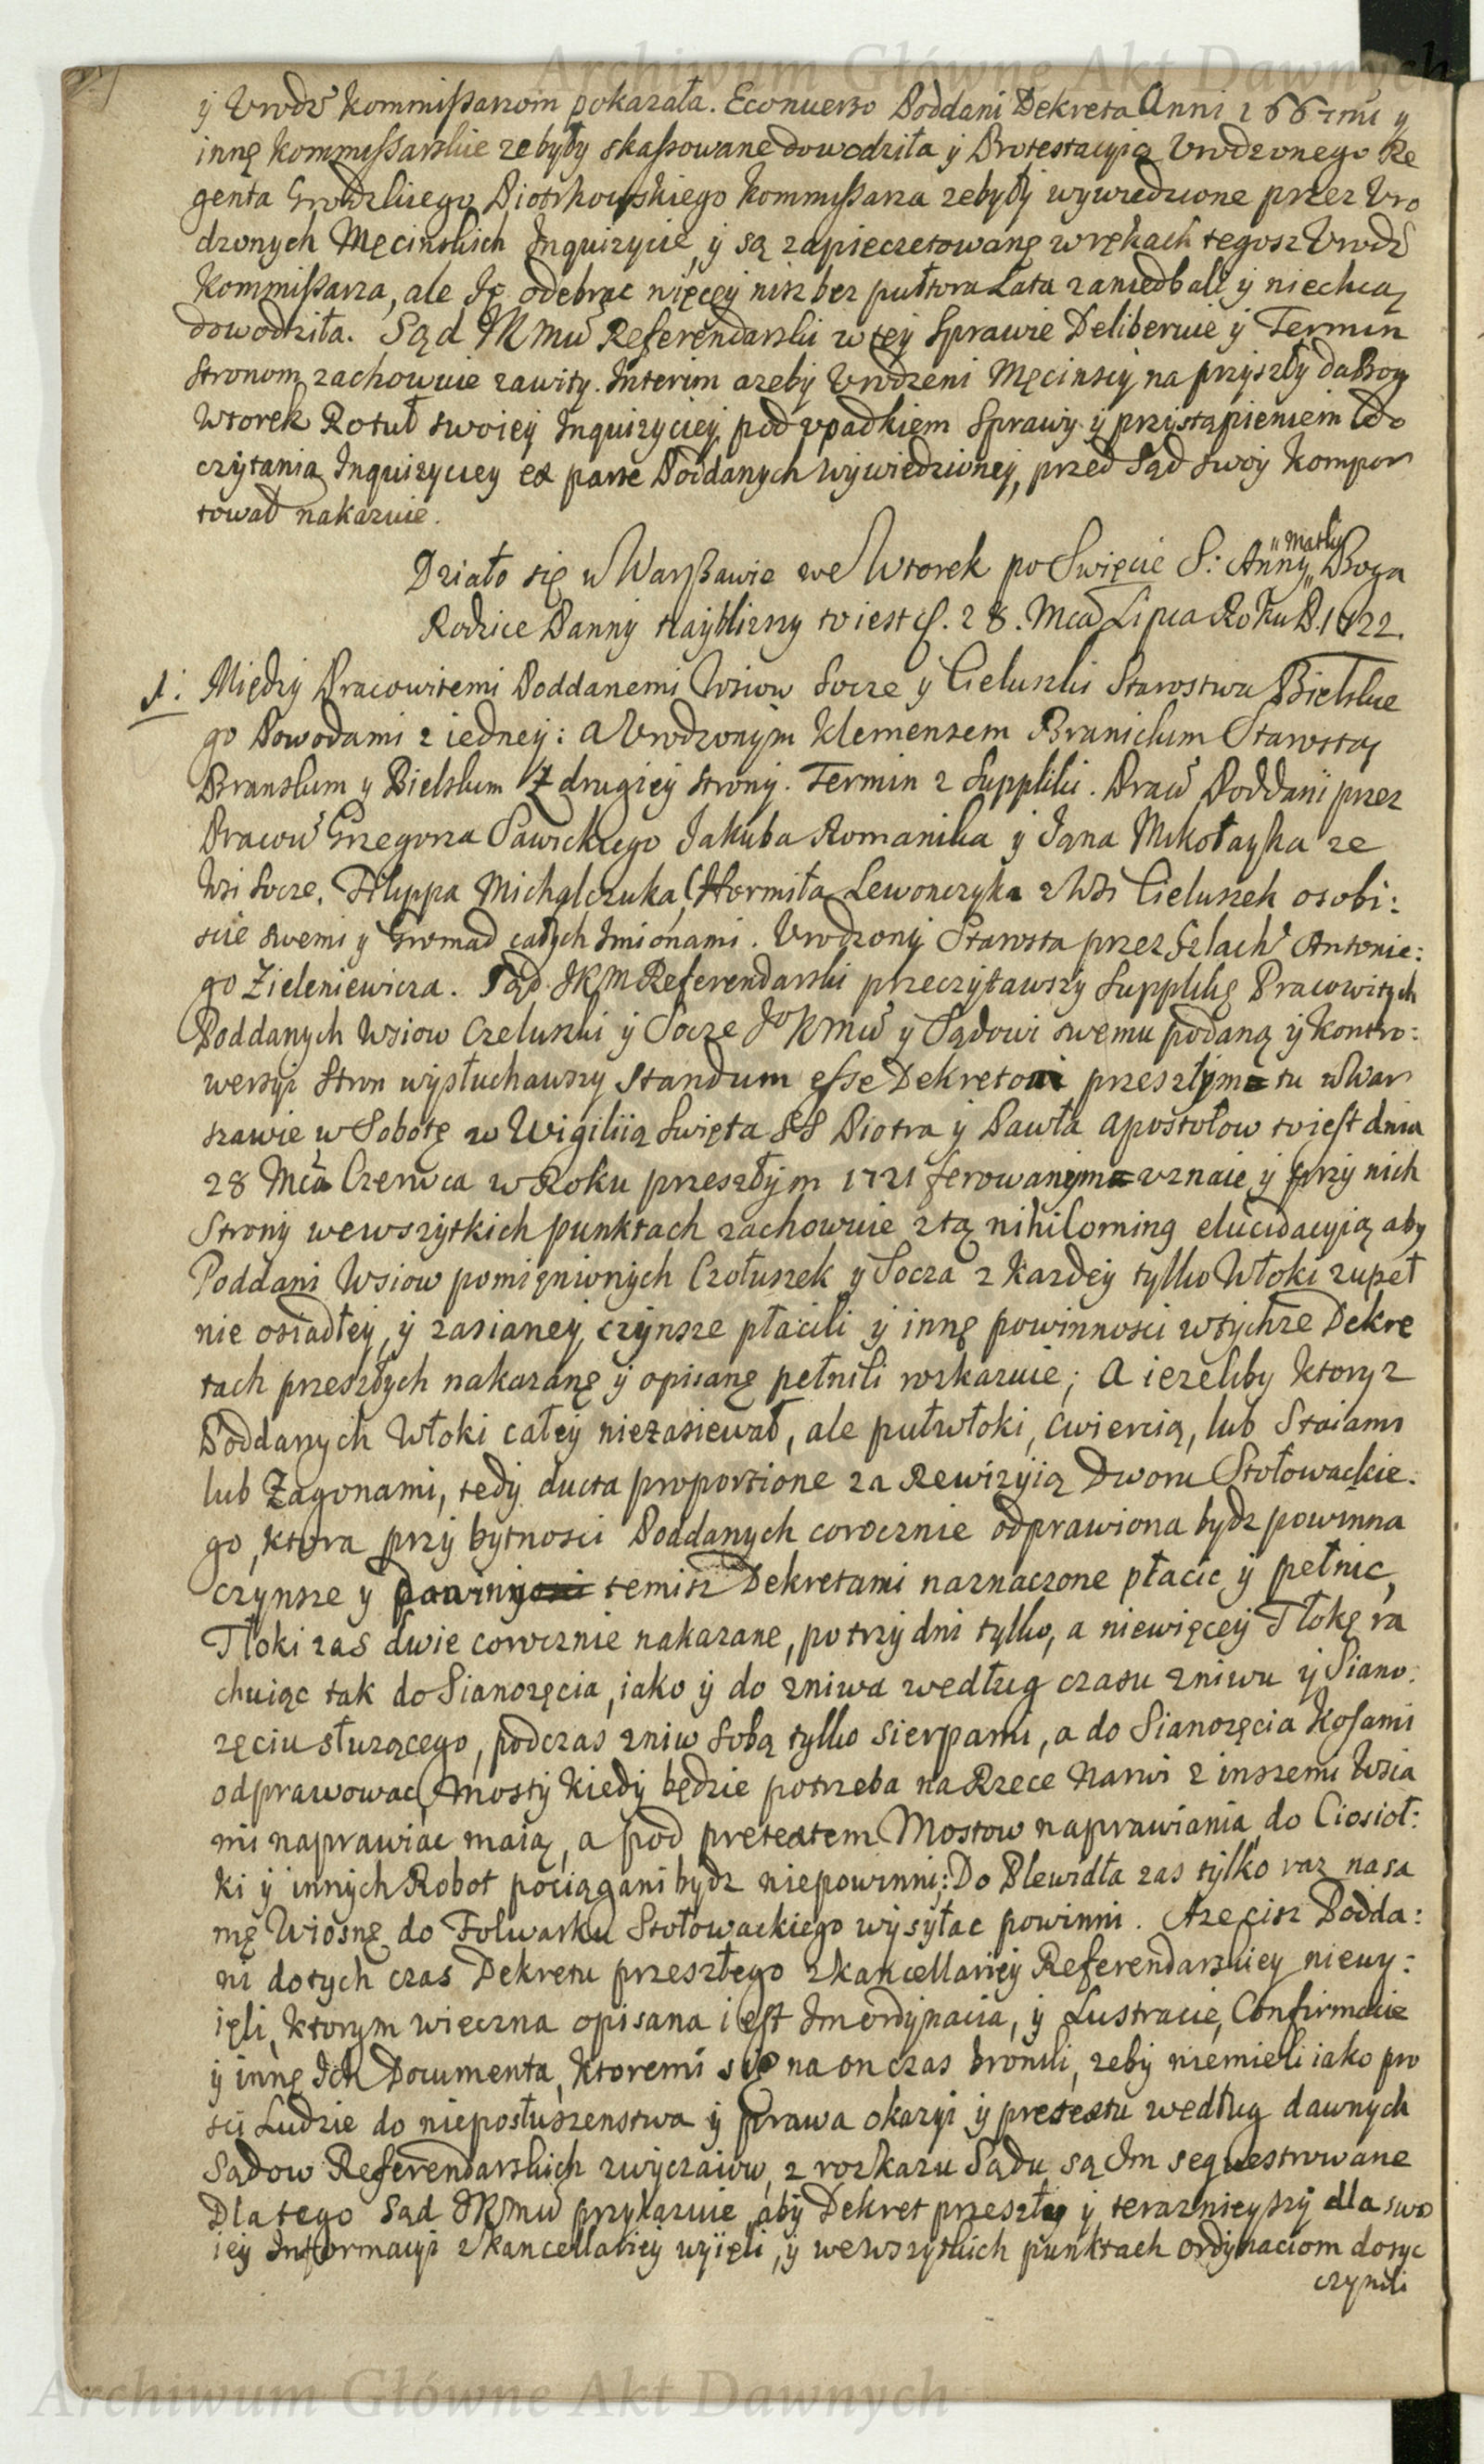 Archiwum Główne Akt Dawnych
ÿ Vrodź Kommißarzom pokazała. Econuerso Poddani Dekreta Anni 1667mi y
innę Kommißarskie ze były skaßowane dowodziła ÿ Protestacyią Vrodzonego Re
genta Grodzkiego Piotrkowskiego Kommißarza ze były wywiedzione przez Vro
dzonych Męcinskich Inquizycie, ÿ są zapieczetowanę w rękach tegosz Vrodź
Kommißarza, ale Ię odebrac więcey nisz bez pułtora Lata zaniedbali ÿ niechcą
dowodziła. Sąd JKMui Referendarski w tey Sprawie Deliberuie ÿ Termin
stronom zachowuie zawity. Interim azeby Vrodzeni Męcinscy na przyszły da Bog
Wtorek Rotuł swoiey Inquizyciey pod vpadkiem Sprawy ÿ przystąpieniem do
czytania Inquizycyey ex parte Poddanych wywiedzioney, przed Sąd swoy kompor
tował nakazuie.
Działo się w Warßawie we Wtorek po Swięcie S: Anny "Matky" Boga
Rodzice Panny nayblizszy to iest d. 28. Mca Lipca Roku P. 1722.
1: Między Pracowitemi Poddanemi Wsiow Socze y Cieluszki Starostwa Bielskie
go Powodami z iedney: a Vrodzonym Klemensem Branickim Starostą
Branskim y Bielskim z drugiey strony. Termin z Suppliki. Praw Poddani przez
Pracow Grzegorza Sawickiego Jakuba Romanika y Jana Mikołayka ze
Wsi Socze, Filippa Michalczuka, Hermiła Lewonczyka z Wsi Cieluszek osobi:
scie swemi y Gromad całych Imionami. Vrodzony Starosta przez Szlach Antonie:
go Zieleniewicza. Sąd JKM Referendarski przeczytawszy Supplikę Pracowitych
Poddanych Wsiow Czeluski ÿ Socze Jo KMui y Sądowi swemu podaną y kontro:
wersyi stron wysłuchawszy standum esse Dekretom przeszłym tu w War
szawie w Sobotę w Wigiliią Swięta SS Piotra ÿ Pawła Apostołow to iest dnia
28 Mca Czerwca w Roku przeszłym 1721 ferowanym vznaie ÿ przy nich
Strony we wszytkich punktach zachowuie z tą nihiloming elucidacyią aby
Poddani Wsiow pomięnionych Czołuszek y Socza z kazdey tylko Włoki zupeł
nie osiadłey, ÿ zasianey, czynsze płacili ÿ innę powinnosci w tychze Dekre
tach przeszłych nakazanę ÿ opisanę pełnili rozkazuie; A iezeliby ktory z
Poddanych Włoki całey niezasiewał, ale pułwłoki, cwiercią, lub Staiami
lub Zagonami, tedy ducta proportione za Rewizyią Dworu Stołowackie:
go, ktora przy bytnosci Poddanych corocznie odprawiona bydz powinna
czynsze y daniny temisz Dekretami naznaczone płacic ÿ pełnic,
Tłoki zas dwie corocznie nakazane, po trzy dni tylko, a niewięcey Tłokę ra
chuiąc tak do Sianozęcia, iako ÿ do zniwa według czasu zniwu ÿ Siano:
zęciu słuzącego, podczas zniw sobą tylko sierpami, a do Sianozęcia Kosami
odprawowac, Mosty kiedy będzie potrzeba na Rzece Narwi z inszemi Wsia
mi naprawiac maią, a pod pretextem Mostow naprawiania, do Ciosioł:
ki ÿ innych Robot pociągani bydz niepowinni; Do Plewidła zas tylko raz na sa
mę Wiosnę do Folwarku Stołowackiego wysyłac powinni. Azecisz Podda:
ni dotych czas Dekretu przeszłego z Kancellariey Referendarskiey niewy:
ięli, ktorym wieczna opisana iest Im ordynacia, ÿ Lustracie, Confirmacie
ÿ innę Ich Documenta, ktoremi się na on czas bronili, zeby niemieli iako pro
sci Ludzie do nieposłuszenstwa ÿ prawa okazyi ÿ pretextu według dawnych
Sądow Referendarskich zwyczaiow, z rozkazu Sądu są Im sequestrowane
Dlatego Sąd JKMui przykazuie, aby Dekret przeszły ÿ teraznieyszy dla swo
iey Informacyi z Kancellariey wyięli, ÿ we wszytkich punktach ordynaciom dosyc
czynili
Archiwum Główne Akt Dawnych